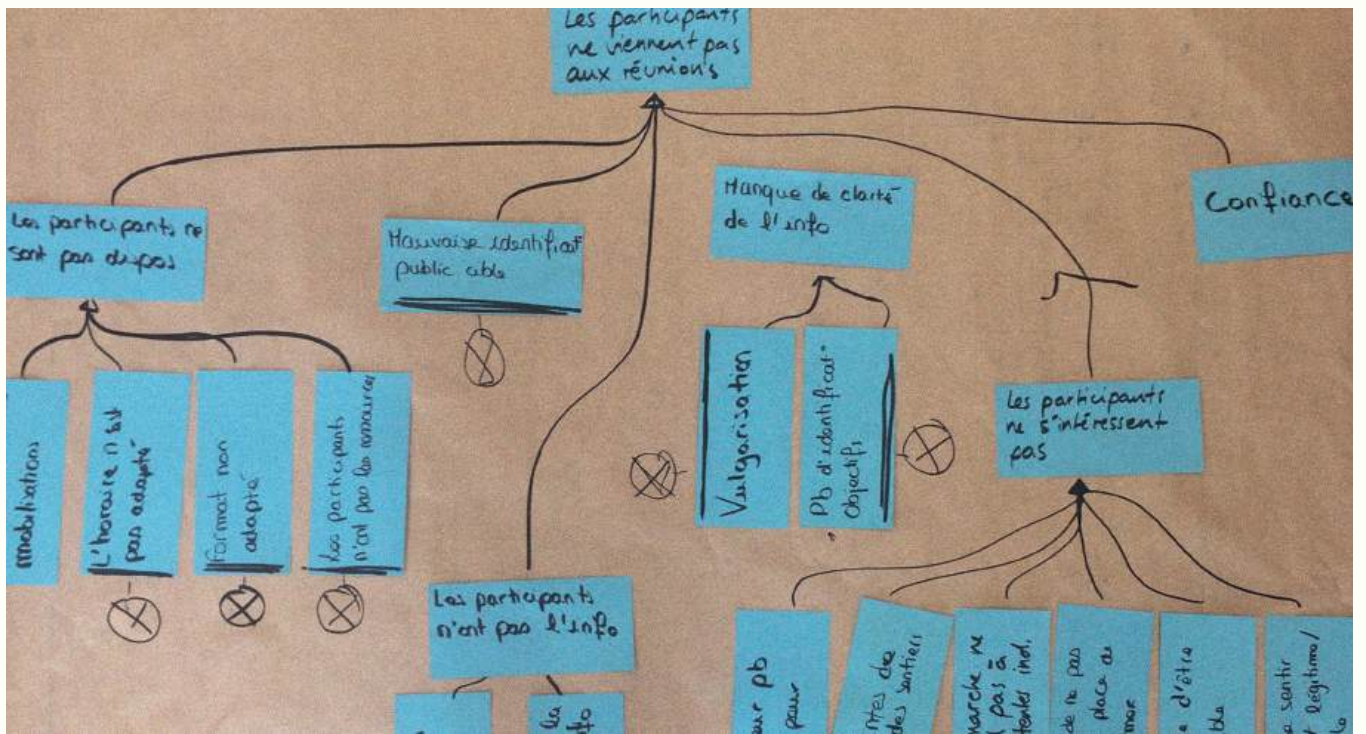 Les participants
ne viennent pas
aux réunions
Les participants ne
sont pas dispos
Mauvaise identificat°
public cible
Manque de clarté
de l'info
Confiance
mobilisations
L'horaire n'est
pas adapté
Format non
adapté
Les participants
n'ont pas les ressources
Vulgarisation
Pb d'identificat°
Objectifs
Les participants
ne s'intéressent
pas
Les participants
n'ont pas l'info
pb
pour
des sentiers
marche ne
pas à
ind.
de ne pas
place de
d'être
sentir
légitime/